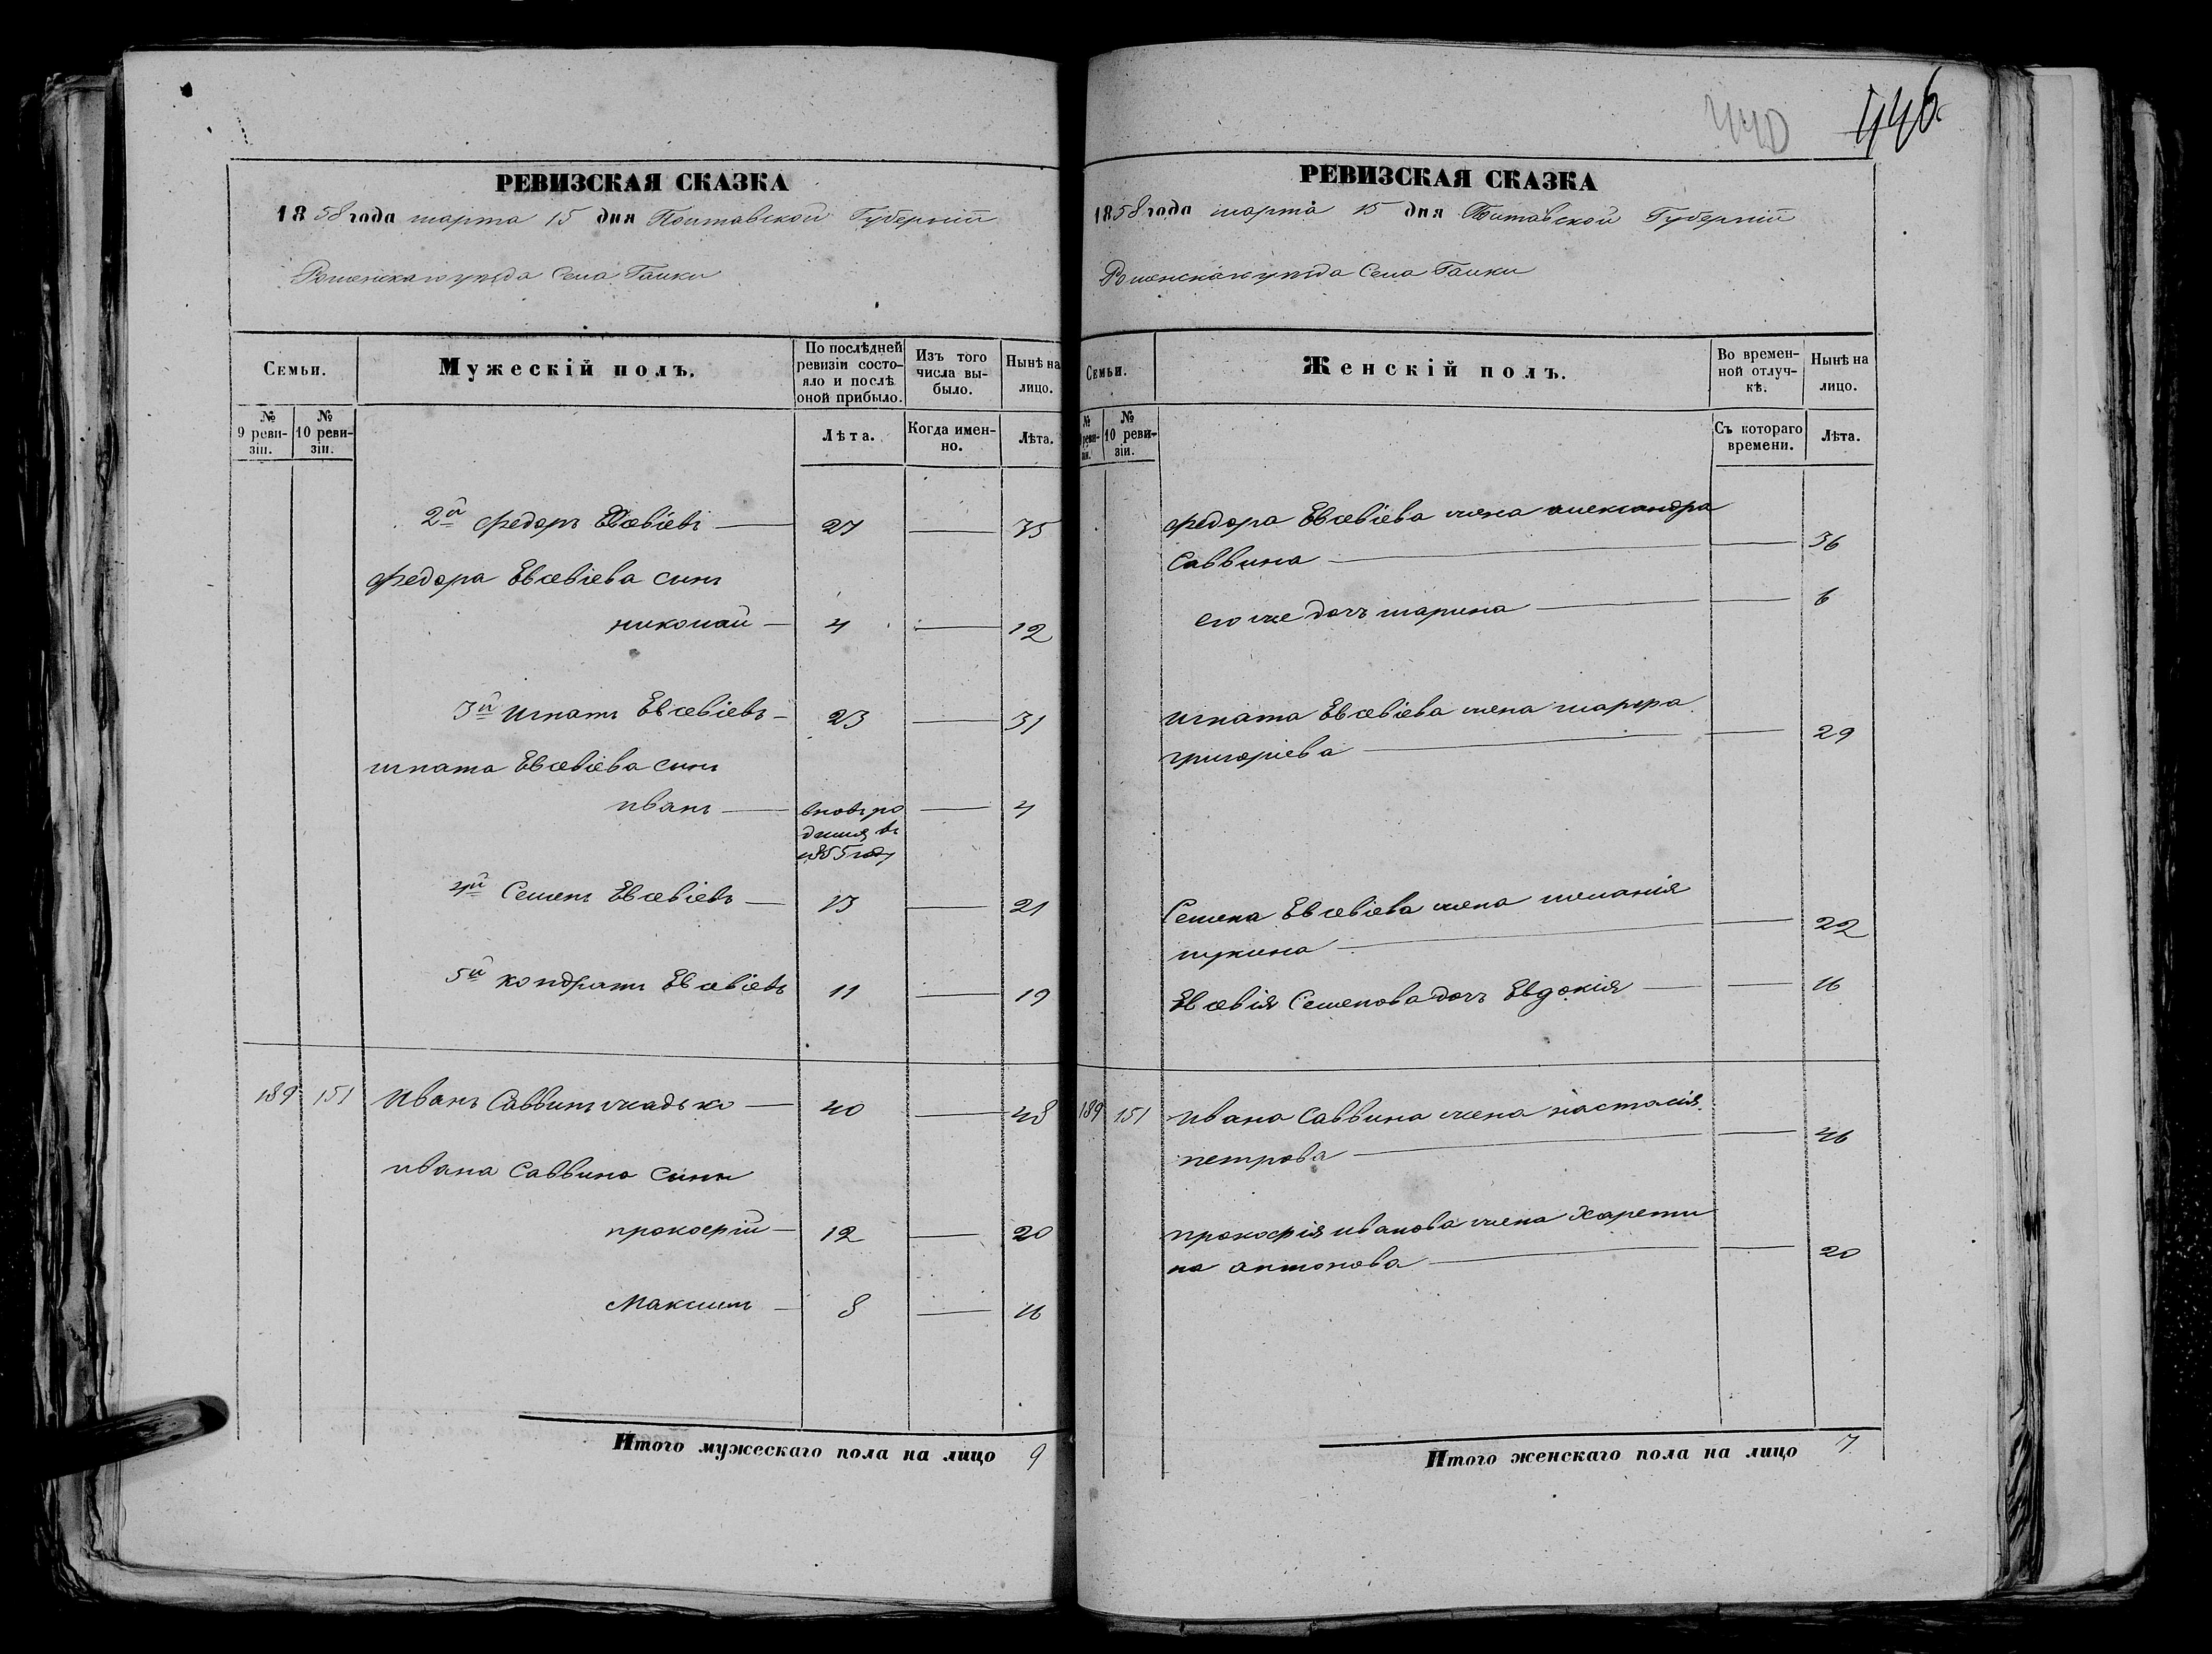 440 446
РЕВИЗСКАЯ СКАЗКА
1858 года марта 15 дня Полтавской Губерніи
Роменскаго уезда Села Галки
Семьи.
Мужескій полъ.
По послѣдней ревизіи состояло и послѣ оной прибыло.
Изъ того числа выбыло.
Нынѣ на лицо.
№ 9 ревизіи.
№ 10 ревизіи.
Лѣта.
Когда именно.
Лѣта.
2й Федоръ Евсевіевъ — 27 — 35
Федора Евсевіева сынъ
Николай — 4 — 12
3й Игнатъ Евсевіевъ — 23 — 31
Игната Евсевіева сынъ
Иванъ — вновь ро — 4
дился въ
1855 году
4й Семенъ Евсевіевъ — 13 — 21
5й Кондратъ Евсевіевъ 11 — 19
189 151 Иванъ Саввинъ Жадько — 40 — 48
Ивана Саввина сыны
Прокофій — 12 — 20
Максимъ — 8 — 16
Итого мужескаго пола на лицо 9
РЕВИЗСКАЯ СКАЗКА
1858 года марта 15 дня Полтавской Губерніи
Роменскаго уезда Села Галки
Семьи.
Женскій полъ.
Во временной отлучкѣ.
Нынѣ на лицо.
№ ревизіи.
№ 10 ревизіи.
Съ котораго времени.
Лѣта.
Федора Евсевіева жена Александра
Саввина — — 36
его же дочь Марина — — 6
Игната Евсевіева жена Марфа
Григоріева — — 29
Семена Евсевіева жена Меланія
Лукина — — 22
Евсевія Семенова дочь Евдокія — — 16
189 151 Ивана Саввина жена Настасія
Петрова — — 46
Прокофія Иванова жена Харети
на Антонова — — 20
Итого женскаго пола на лицо 7